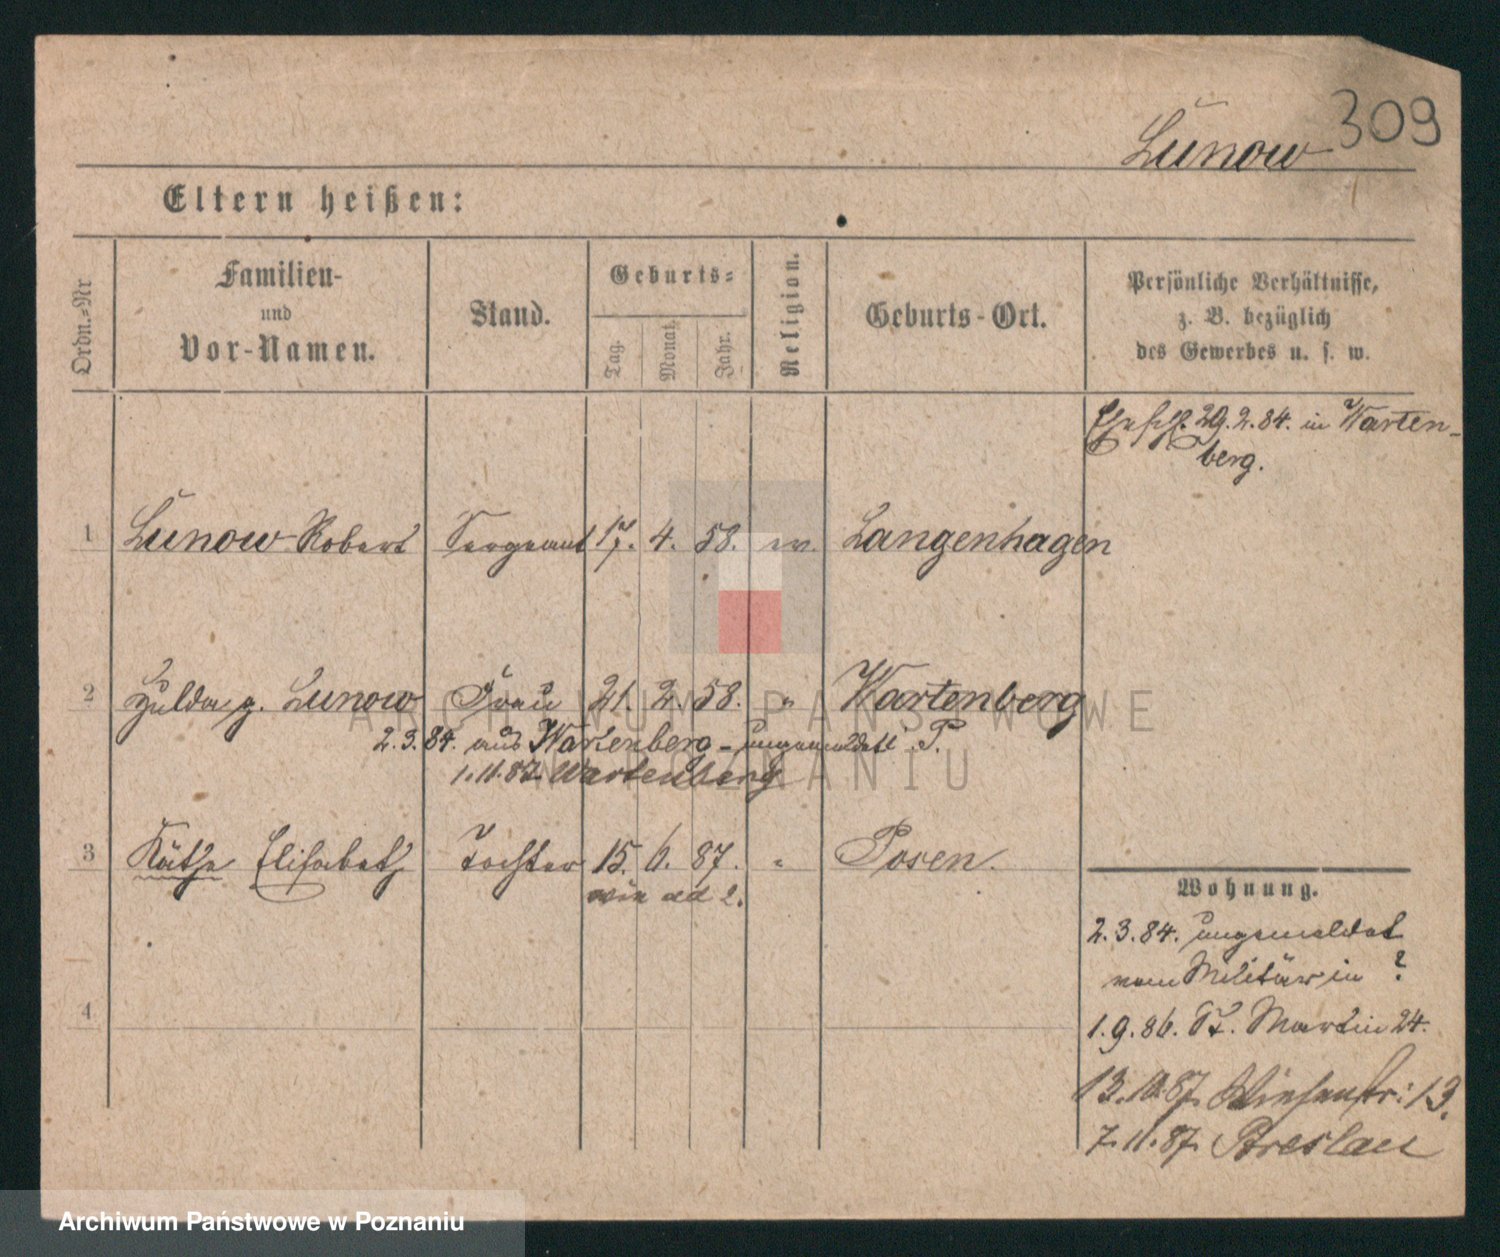 309
Lunow
Eltern heißen:
Ordn.-Nr
Familien-
und
Vor-Namen.
Stand.
Geburts-
Tag.
Monat.
Jahr.
Religion.
Geburts-Ort.
Persönliche Verhältnisse,
z. B. bezüglich
des Gewerbes u. s. w.
29.2.84. in Warten-
berg.
1 Lunow Robert Sergeant 17. 4. 58. ev. Langenhagen
2 Hulda g. Lunow Frau 21. 2. 58. " Wartenberg
2.3.84. aus Wartenberg - P.
1.11.87 Wartenberg
3 Käthe Elisabeth Tochter 15. 6. 87. " Posen.
wie ad 2.
Wohnung.
2.3.84. ungemeldet
vom Militär in ?
4
1.9.86. St. Martin 24.
13.10.87. Wiesenstr: 13.
7.11.87. Breslau
ARCHIWUM PAŃSTWOWE
W POZNANIU
Archiwum Państwowe w Poznaniu